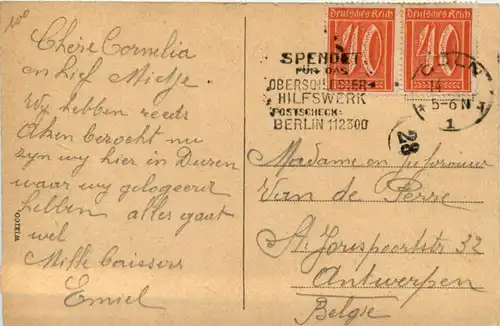 100
Chère Cornelia
en lief Mietje
Wy hebben reeds
Aken bezocht nu
zyn wy hier in Duren
waar wy gelogeerd
hebben alles gaat
wel
Mille baisers
Emiel
WIXICO.
Deutsches Reich Deutsches Reich
40 40
SPENDET
FÜR DAS
OBERSCHLESIER-
HILFSWERK
POSTSCHECK:
BERLIN 112300
CÖLN
14
* 5-6 N *
1
28
Madame en juffrouw
Van de Perre
St. Jorispoortstr 32
Antwerpen
Belgie